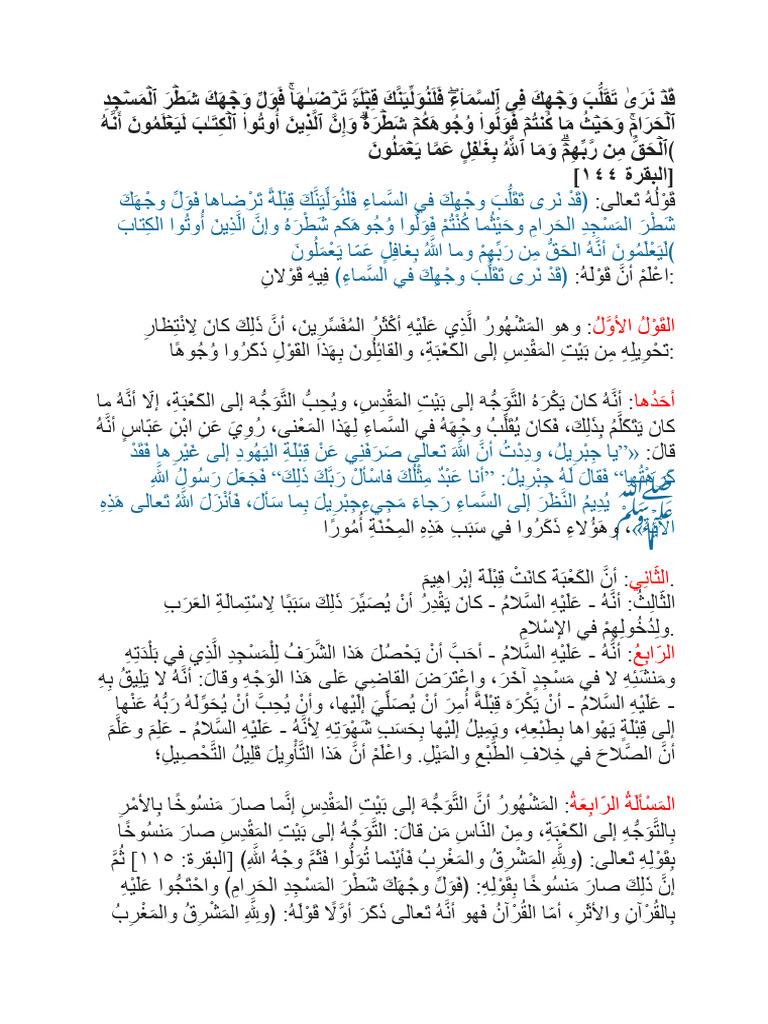 قَدۡ نَرَىٰ تَقَلُّبَ وَجۡهِكَ فِي ٱلسَّمَآءِۖ فَلَنُوَلِّيَنَّكَ قِبۡلَةٗ تَرۡضَىٰهَاۚ فَوَلِّ وَجۡهَكَ شَطۡرَ ٱلۡمَسۡجِدِ
ٱلۡحَرَامِۚ وَحَيۡثُ مَا كُنتُمۡ فَوَلُّواْ وُجُوهَكُمۡ شَطۡرَهُۥۗ وَإِنَّ ٱلَّذِينَ أُوتُواْ ٱلۡكِتَٰبَ لَيَعۡلَمُونَ أَنَّهُ
ٱلۡحَقُّ مِن رَّبِّهِمۡۗ وَمَا ٱللَّهُ بِغَٰفِلٍ عَمَّا يَعۡمَلُونَ(
[البقرة ١٤٤]
قَوْلُهُ تَعالى: (قَدْ نَرى تَقَلُّبَ وجْهِكَ في السَّماءِ فَلَنُوَلِّيَنَّكَ قِبْلَةً تَرْضاها فَوَلِّ وجْهَكَ
شَطْرَ المَسْجِدِ الحَرامِ وحَيْثُما كُنْتُمْ فَوَلُّوا وُجُوهَكم شَطْرَهُ وإنَّ الَّذِينَ أُوتُوا الكِتابَ
لَيَعْلَمُونَ أنَّهُ الحَقُّ مِن رَبِّهِمْ وما اللَّهُ بِغافِلٍ عَمّا يَعْمَلُونَ(
اعْلَمْ أنَّ قَوْلَهُ: (قَدْ نَرى تَقَلُّبَ وجْهِكَ في السَّماءِ) فِيهِ قَوْلانِ:
القَوْلُ الأوَّلُ: وهو المَشْهُورُ الَّذِي عَلَيْهِ أكْثَرُ المُفَسِّرِينَ، أنَّ ذَلِكَ كانَ لِانْتِظارِ
تَحْوِيلِهِ مِن بَيْتِ المَقْدِسِ إلى الكَعْبَةِ، والقائِلُونَ بِهَذا القَوْلِ ذَكَرُوا وُجُوهًا:
أحَدُها: أنَّهُ كانَ يَكْرَهُ التَّوَجُّهَ إلى بَيْتِ المَقْدِسِ، ويُحِبُّ التَّوَجُّهَ إلى الكَعْبَةِ، إلّا أنَّهُ ما
كانَ يَتَكَلَّمُ بِذَلِكَ، فَكانَ يُقَلِّبُ وجْهَهُ في السَّماءِ لِهَذا المَعْنى، رُوِيَ عَنِ ابْنِ عَبّاسٍ أنَّهُ
قالَ: «”يا جِبْرِيلُ، ودِدْتُ أنَّ اللَّهَ تَعالى صَرَفَنِي عَنْ قِبْلَةِ اليَهُودِ إلى غَيْرِها فَقَدْ
كَرِهْتُها“ فَقالَ لَهُ جِبْرِيلُ: ”أنا عَبْدٌ مِثْلُكَ فاسْألْ رَبَّكَ ذَلِكَ“ فَجَعَلَ رَسُولُ اللَّهِ
ﷺ يُدِيمُ النَّظَرَ إلى السَّماءِ رَجاءَ مَجِيءِ جِبْرِيلَ بِما سَألَ، فَأنْزَلَ اللَّهُ تَعالى هَذِهِ
الآيَةَ»، وهَؤُلاءِ ذَكَرُوا في سَبَبِ هَذِهِ المِحْنَةِ أُمُورًا
الثّانِي: أنَّ الكَعْبَةَ كانَتْ قِبْلَةَ إبْراهِيمَ.
الثّالِثُ: أنَّهُ - عَلَيْهِ السَّلامُ - كانَ يَقْدِرُ أنْ يُصَيِّرَ ذَلِكَ سَبَبًا لِاسْتِمالَةِ العَرَبِ
ولِدُخُولِهِمْ في الإسْلامِ.
الرّابِعُ: أنَّهُ - عَلَيْهِ السَّلامُ - أحَبَّ أنْ يَحْصُلَ هَذا الشَّرَفُ لِلْمَسْجِدِ الَّذِي في بَلْدَتِهِ
ومَنشَئِهِ لا في مَسْجِدٍ آخَرَ، واعْتَرَضَ القاضِي عَلى هَذا الوَجْهِ وقالَ: أنَّهُ لا يَلِيقُ بِهِ
- عَلَيْهِ السَّلامُ - أنْ يَكْرَهَ قِبْلَةً أُمِرَ أنْ يُصَلِّيَ إلَيْها، وأنْ يُحِبَّ أنْ يُحَوِّلَهُ رَبُّهُ عَنْها
إلى قِبْلَةٍ يَهْواها بِطَبْعِهِ، ويَمِيلُ إلَيْها بِحَسَبِ شَهْوَتِهِ لِأنَّهُ - عَلَيْهِ السَّلامُ - عَلِمَ وعَلَّمَ
أنَّ الصَّلاحَ في خِلافِ الطَّبْعِ والمَيْلِ. واعْلَمْ أنَّ هَذا التَّأْوِيلَ قَلِيلُ التَّحْصِيلِ؛
المَسْألَةُ الرّابِعَةُ: المَشْهُورُ أنَّ التَّوَجُّهَ إلى بَيْتِ المَقْدِسِ إنَّما صارَ مَنسُوخًا بِالأمْرِ
بِالتَّوَجُّهِ إلى الكَعْبَةِ، ومِنَ النّاسِ مَن قالَ: التَّوَجُّهُ إلى بَيْتِ المَقْدِسِ صارَ مَنسُوخًا
بِقَوْلِهِ تَعالى: (ولِلَّهِ المَشْرِقُ والمَغْرِبُ فَأيْنَما تُوَلُّوا فَثَمَّ وجْهُ اللَّهِ) [البقرة: ١١٥] ثُمَّ
إنَّ ذَلِكَ صارَ مَنسُوخًا بِقَوْلِهِ: (فَوَلِّ وجْهَكَ شَطْرَ المَسْجِدِ الحَرامِ) واحْتَجُّوا عَلَيْهِ
بِالقُرْآنِ والأثَرِ، أمّا القُرْآنُ فَهو أنَّهُ تَعالى ذَكَرَ أوَّلًا قَوْلَهُ: (ولِلَّهِ المَشْرِقُ والمَغْرِبُ